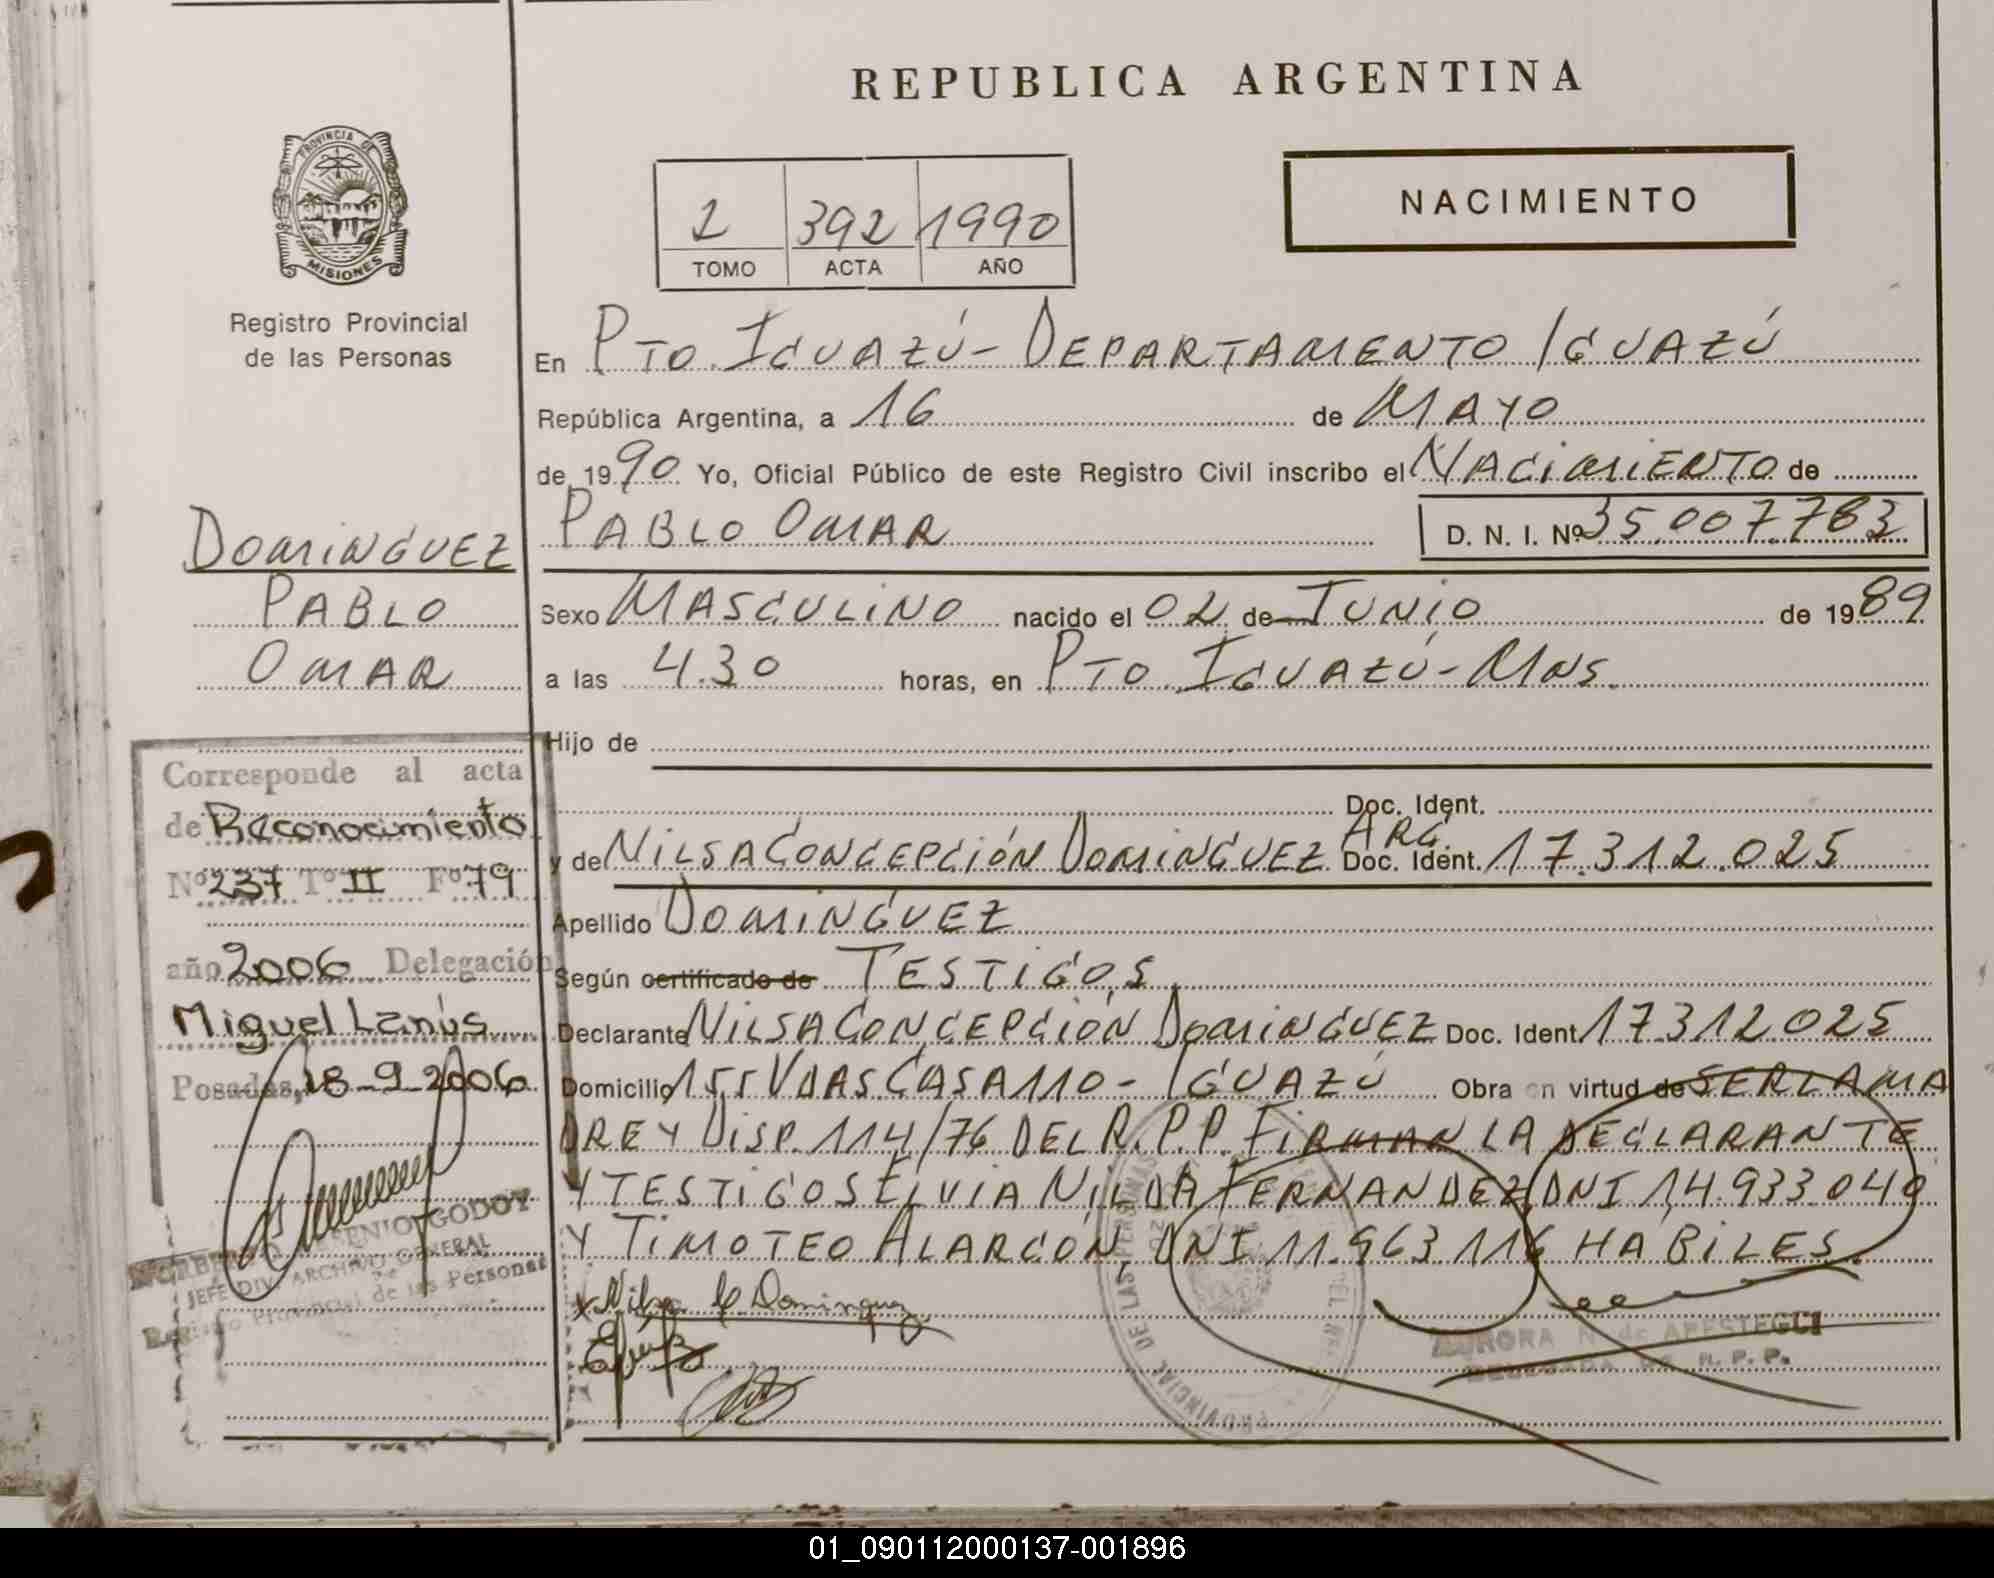 REPUBLICA ARGENTINA
PROVINCIA DE
MISIONES
Registro Provincial
de las Personas
NACIMIENTO
2 392 1990
TOMO ACTA AÑO
En PTO. IGUAZÚ - DEPARTAMENTO IGUAZÚ
República Argentina, a 16 de MAYO
de 1990 Yo, Oficial Público de este Registro Civil inscribo el NACIMIENTO de
PABLO OMAR D. N. I. Nº 35.007.783
Sexo MASCULINO nacido el 02 de JUNIO de 1989
a las 4.30 horas, en PTO. IGUAZÚ - MNS.
Hijo de
Doc. Ident.
ARG.
y de NILSA CONCEPCIÓN DOMINGUEZ Doc. Ident. 17.312.025
Apellido DOMINGUEZ
Según certificado de TESTIGOS
Declarante NILSA CONCEPCIÓN DOMINGUEZ Doc. Ident. 17.312.025
Domicilio 155 VDAS CASA 110 - IGUAZÚ Obra en virtud de SER LA MA
DRE Y DISP. 114/76 DEL R.P.P. FIRMAN LA DECLARANTE
Y TESTIGOS ELVIA NILDA FERNANDEZ DNI 14.933.040
Y TIMOTEO ALARCÓN, DNI 11.963.116 HABILES.
x Nilsa C Dominguez
AURORA N. de APESTEGUI
DELEGADA DE R. P. P.
DOMINGUEZ
PABLO
OMAR
Corresponde al acta
de Reconocimiento
Nº 237 Tº II Fº 79
año 2006 Delegación
Miguel Lanús
Posadas, 18-9-2006
GODOY
JEFE DIV. ARCHIVO GENERAL
de
Registro Provincial de las Personas
PROVINCIAL DE LAS PERSONAS
01_090112000137-001896